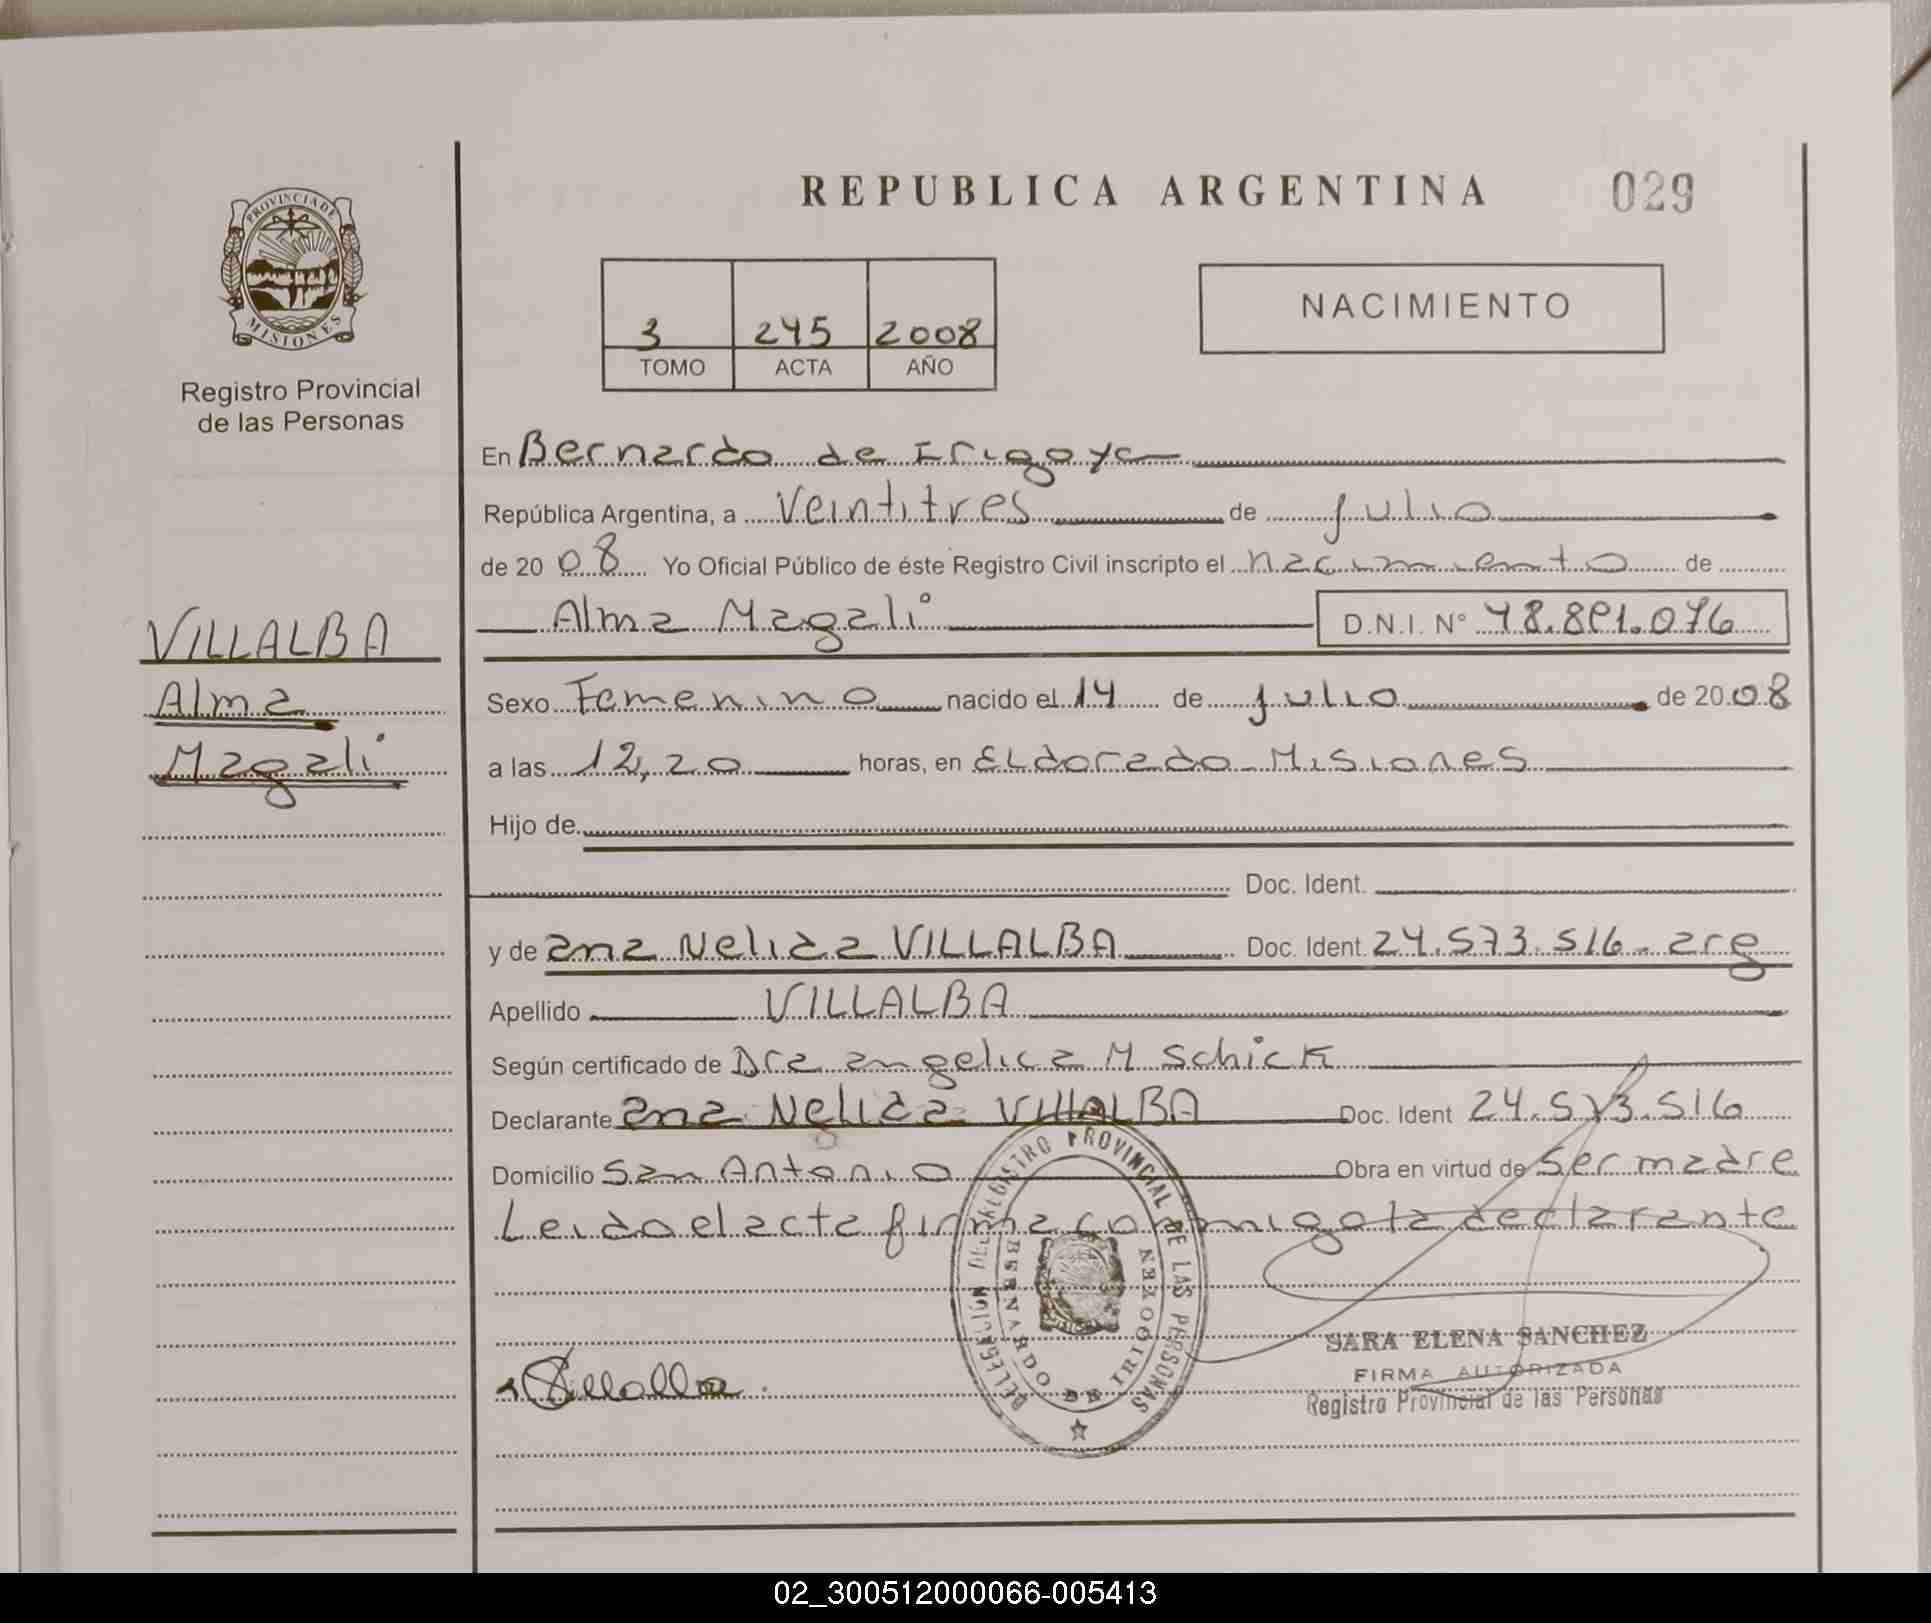 REPUBLICA ARGENTINA 029
PROVINCIA DE MISIONES
Registro Provincial
de las Personas
3 245 2008
TOMO ACTA AÑO
NACIMIENTO
En Bernardo de Irigoye
República Argentina, a Veintitres de julio
de 20 08 Yo Oficial Público de éste Registro Civil inscripto el nacimiento de
Alma Magali D.N.I. Nº
VILLALBA
Alma
Magali
Sexo Femenino nacido el 14 de julio de 20 08
a las 12,20 horas, en Eldorado Misiones
Hijo de
Doc. Ident.
y de ana Nelida VILLALBA Doc. Ident. 24.573.516 - arg
Apellido VILLALBA
Según certificado de Dra angelica M Schick
Declarante ana Nelida VIllALBA Doc. Ident 24.573.516
Domicilio San Antonio Obra en virtud de ser madre
Leido el acta firma conmigo la declarante
DELEGACION DEL REGISTRO PROVINCIAL DE LAS PERSONAS
BERNARDO DE IRIGOYEN
SARA ELENA SANCHEZ
FIRMA AUTORIZADA
Registro Provincial de las Personas
02_300512000066-005413